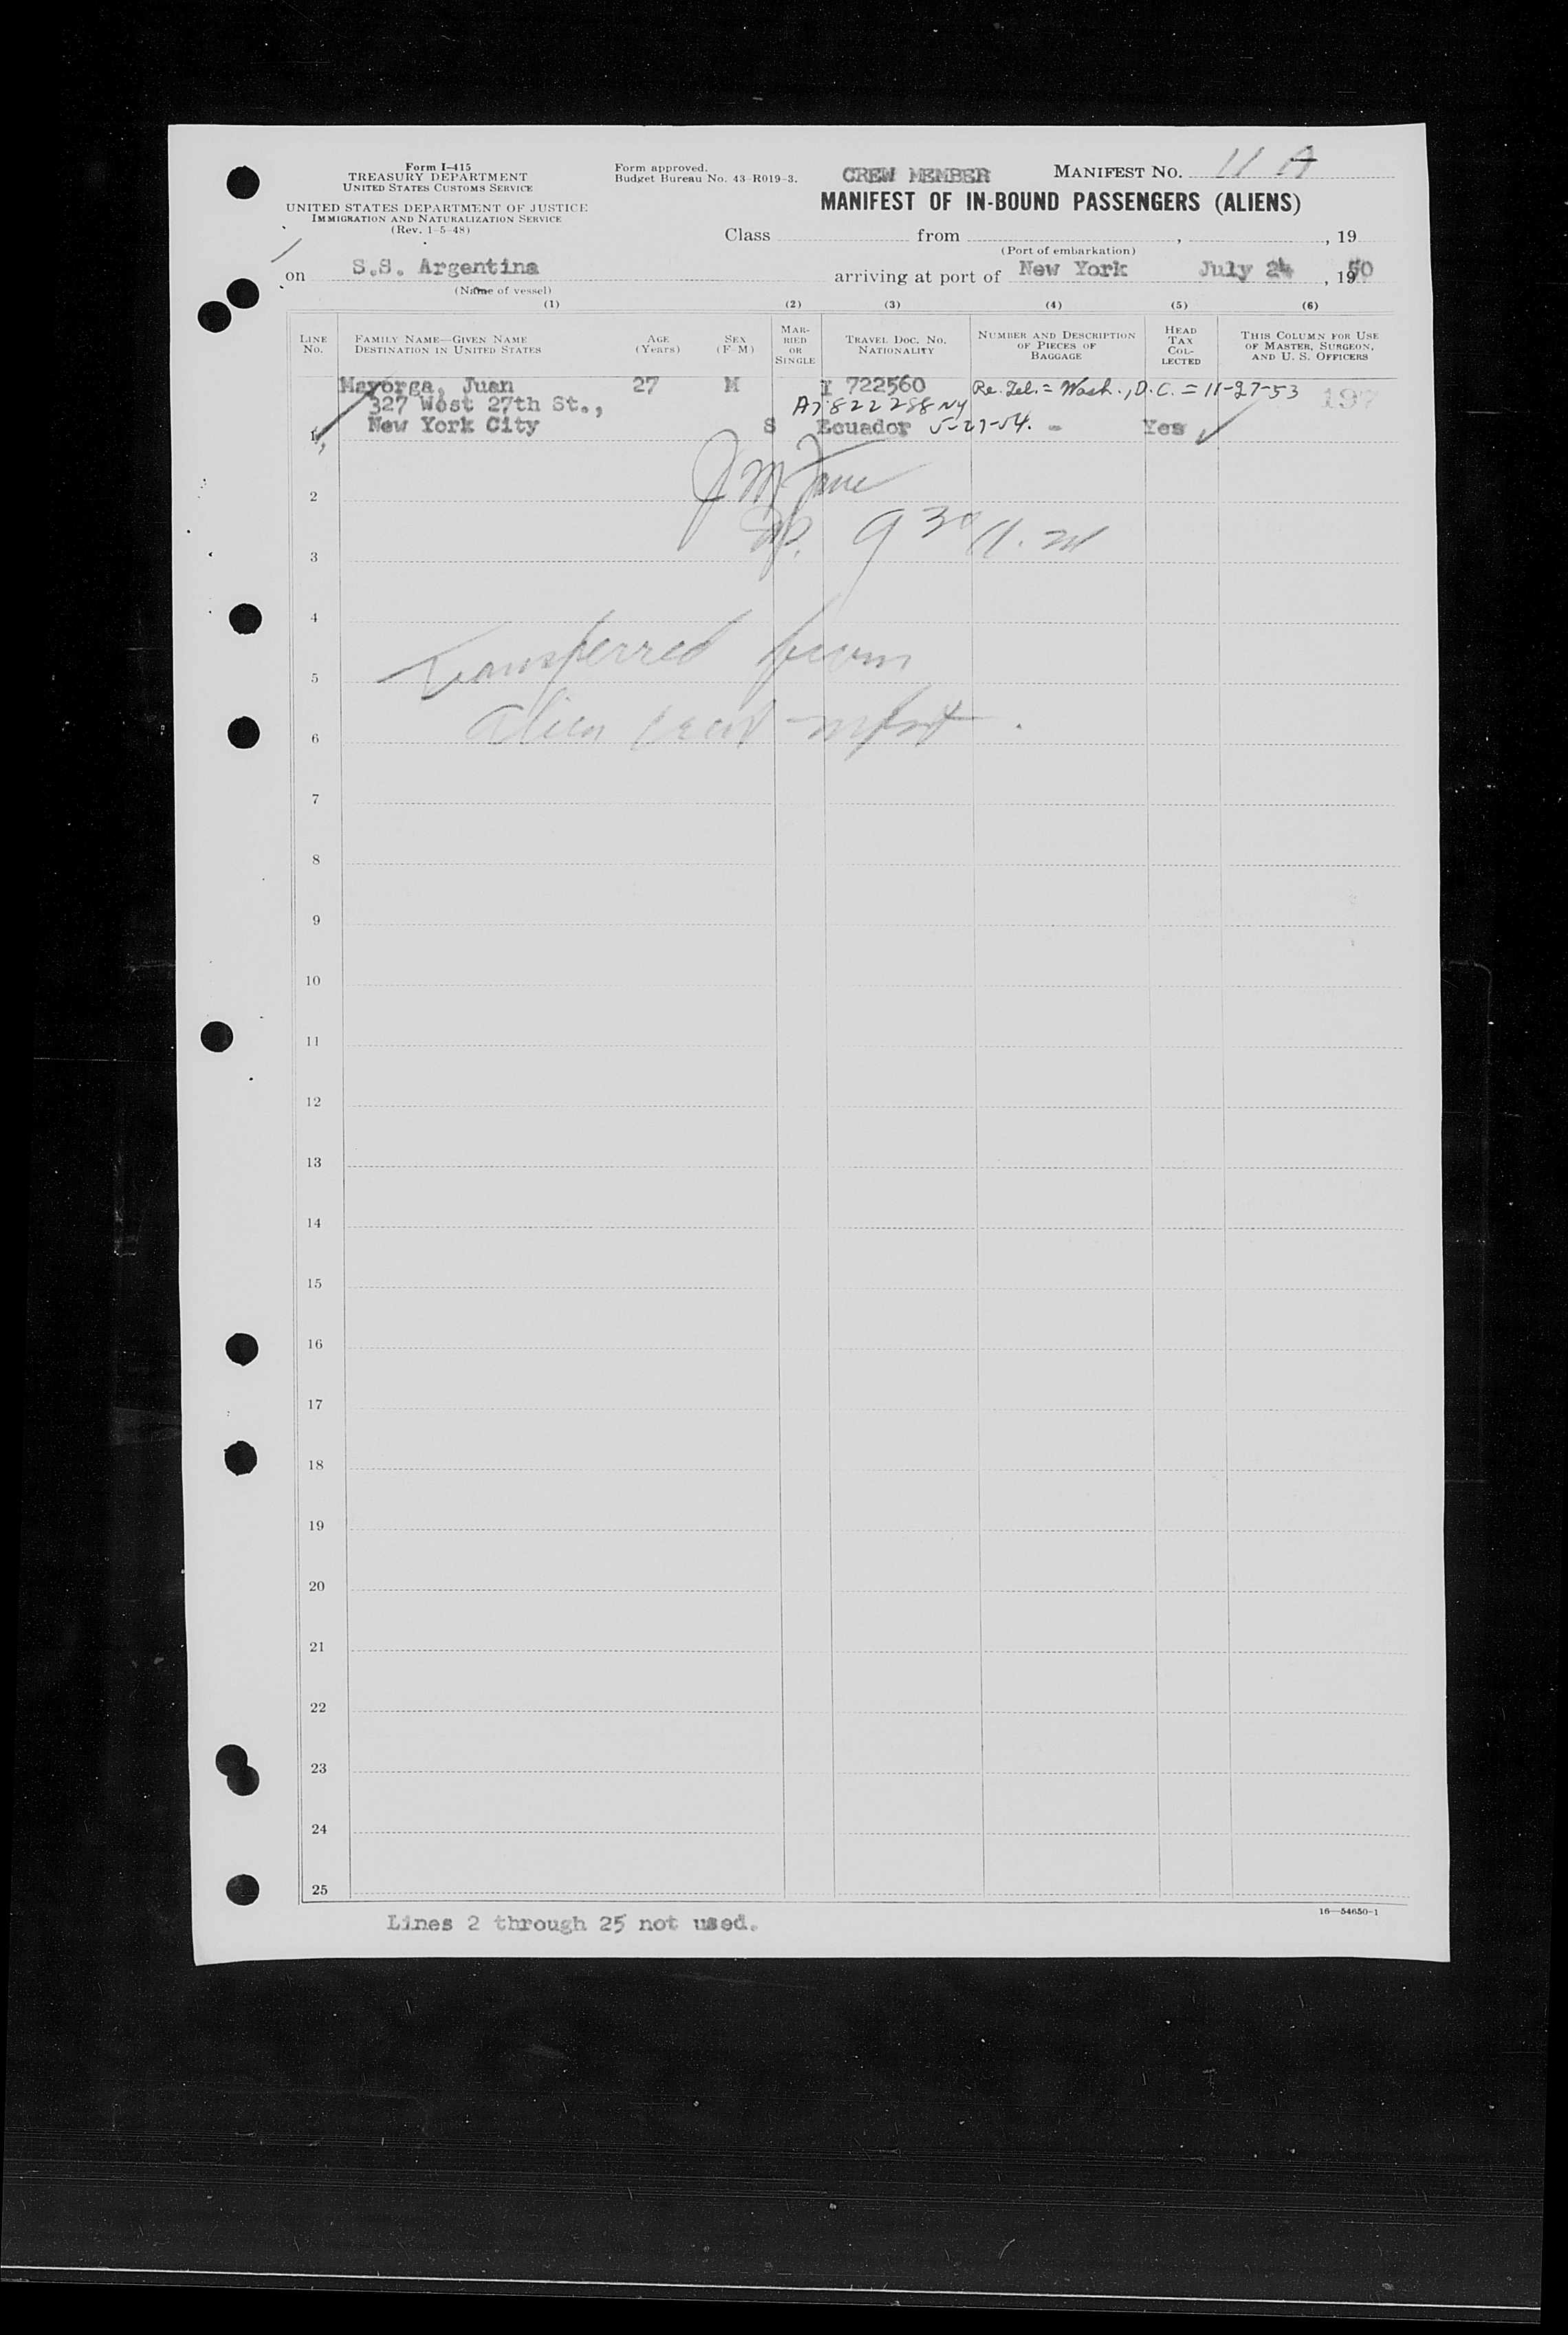 Form I-415
TREASURY DEPARTMENT
UNITED STATES CUSTOMS SERVICE
UNITED STATES DEPARTMENT OF JUSTICE
IMMIGRATION AND NATURALIZATION SERVICE
(Rev. 1-5-48)
Form approved.
Budget Bureau No. 43-R019-3.
CREW MEMBER
MANIFEST NO. 11 A
MANIFEST OF IN-BOUND PASSENGERS (ALIENS)
Class from , , 19
(Port of embarkation)
on S.S. Argentina arriving at port of New York July 24, 1950
(Name of vessel)
(1) (2) (3) (4) (5) (6)
LINE NO.
FAMILY NAME—GIVEN NAME
DESTINATION IN UNITED STATES
AGE
(Years)
SEX
(F-M)
MARRIED OR SINGLE
TRAVEL DOC. NO.
NATIONALITY
NUMBER AND DESCRIPTION
OF PIECES OF
BAGGAGE
HEAD
TAX
COL-
LECTED
THIS COLUMN FOR USE
OF MASTER, SURGEON,
AND U. S. OFFICERS
Mayorga, Juan 27 M I 722560 Re. Tel. = Wash., D.C. = 11-27-53 197
327 West 27th St., A7822288 NY
1 New York City S Ecuador 5-27-54. - Yes
2
9 30 A.M
3
4
Transferred from
5
alien
6
7
8
9
10
11
12
13
14
15
16
17
18
19
20
21
22
23
24
25
Lines 2 through 25 not used.
16—54650-1